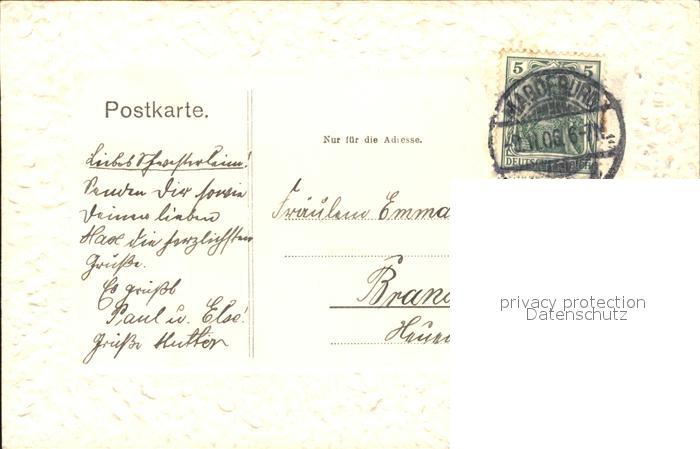 Postkarte.
Nur für die Adresse.
5 5
MAGDEBURG
11.06. 6-7N.
DEUTSCHES REICH
Liebes Schwesterlein!
Senden Dir sowie
Deinen lieben
Max die herzlichsten
Grüße.
Es grüßt
Paul u. Else!
Grüße Mutter
Fräulein Emma
Bran
privacy protection
Datenschutz